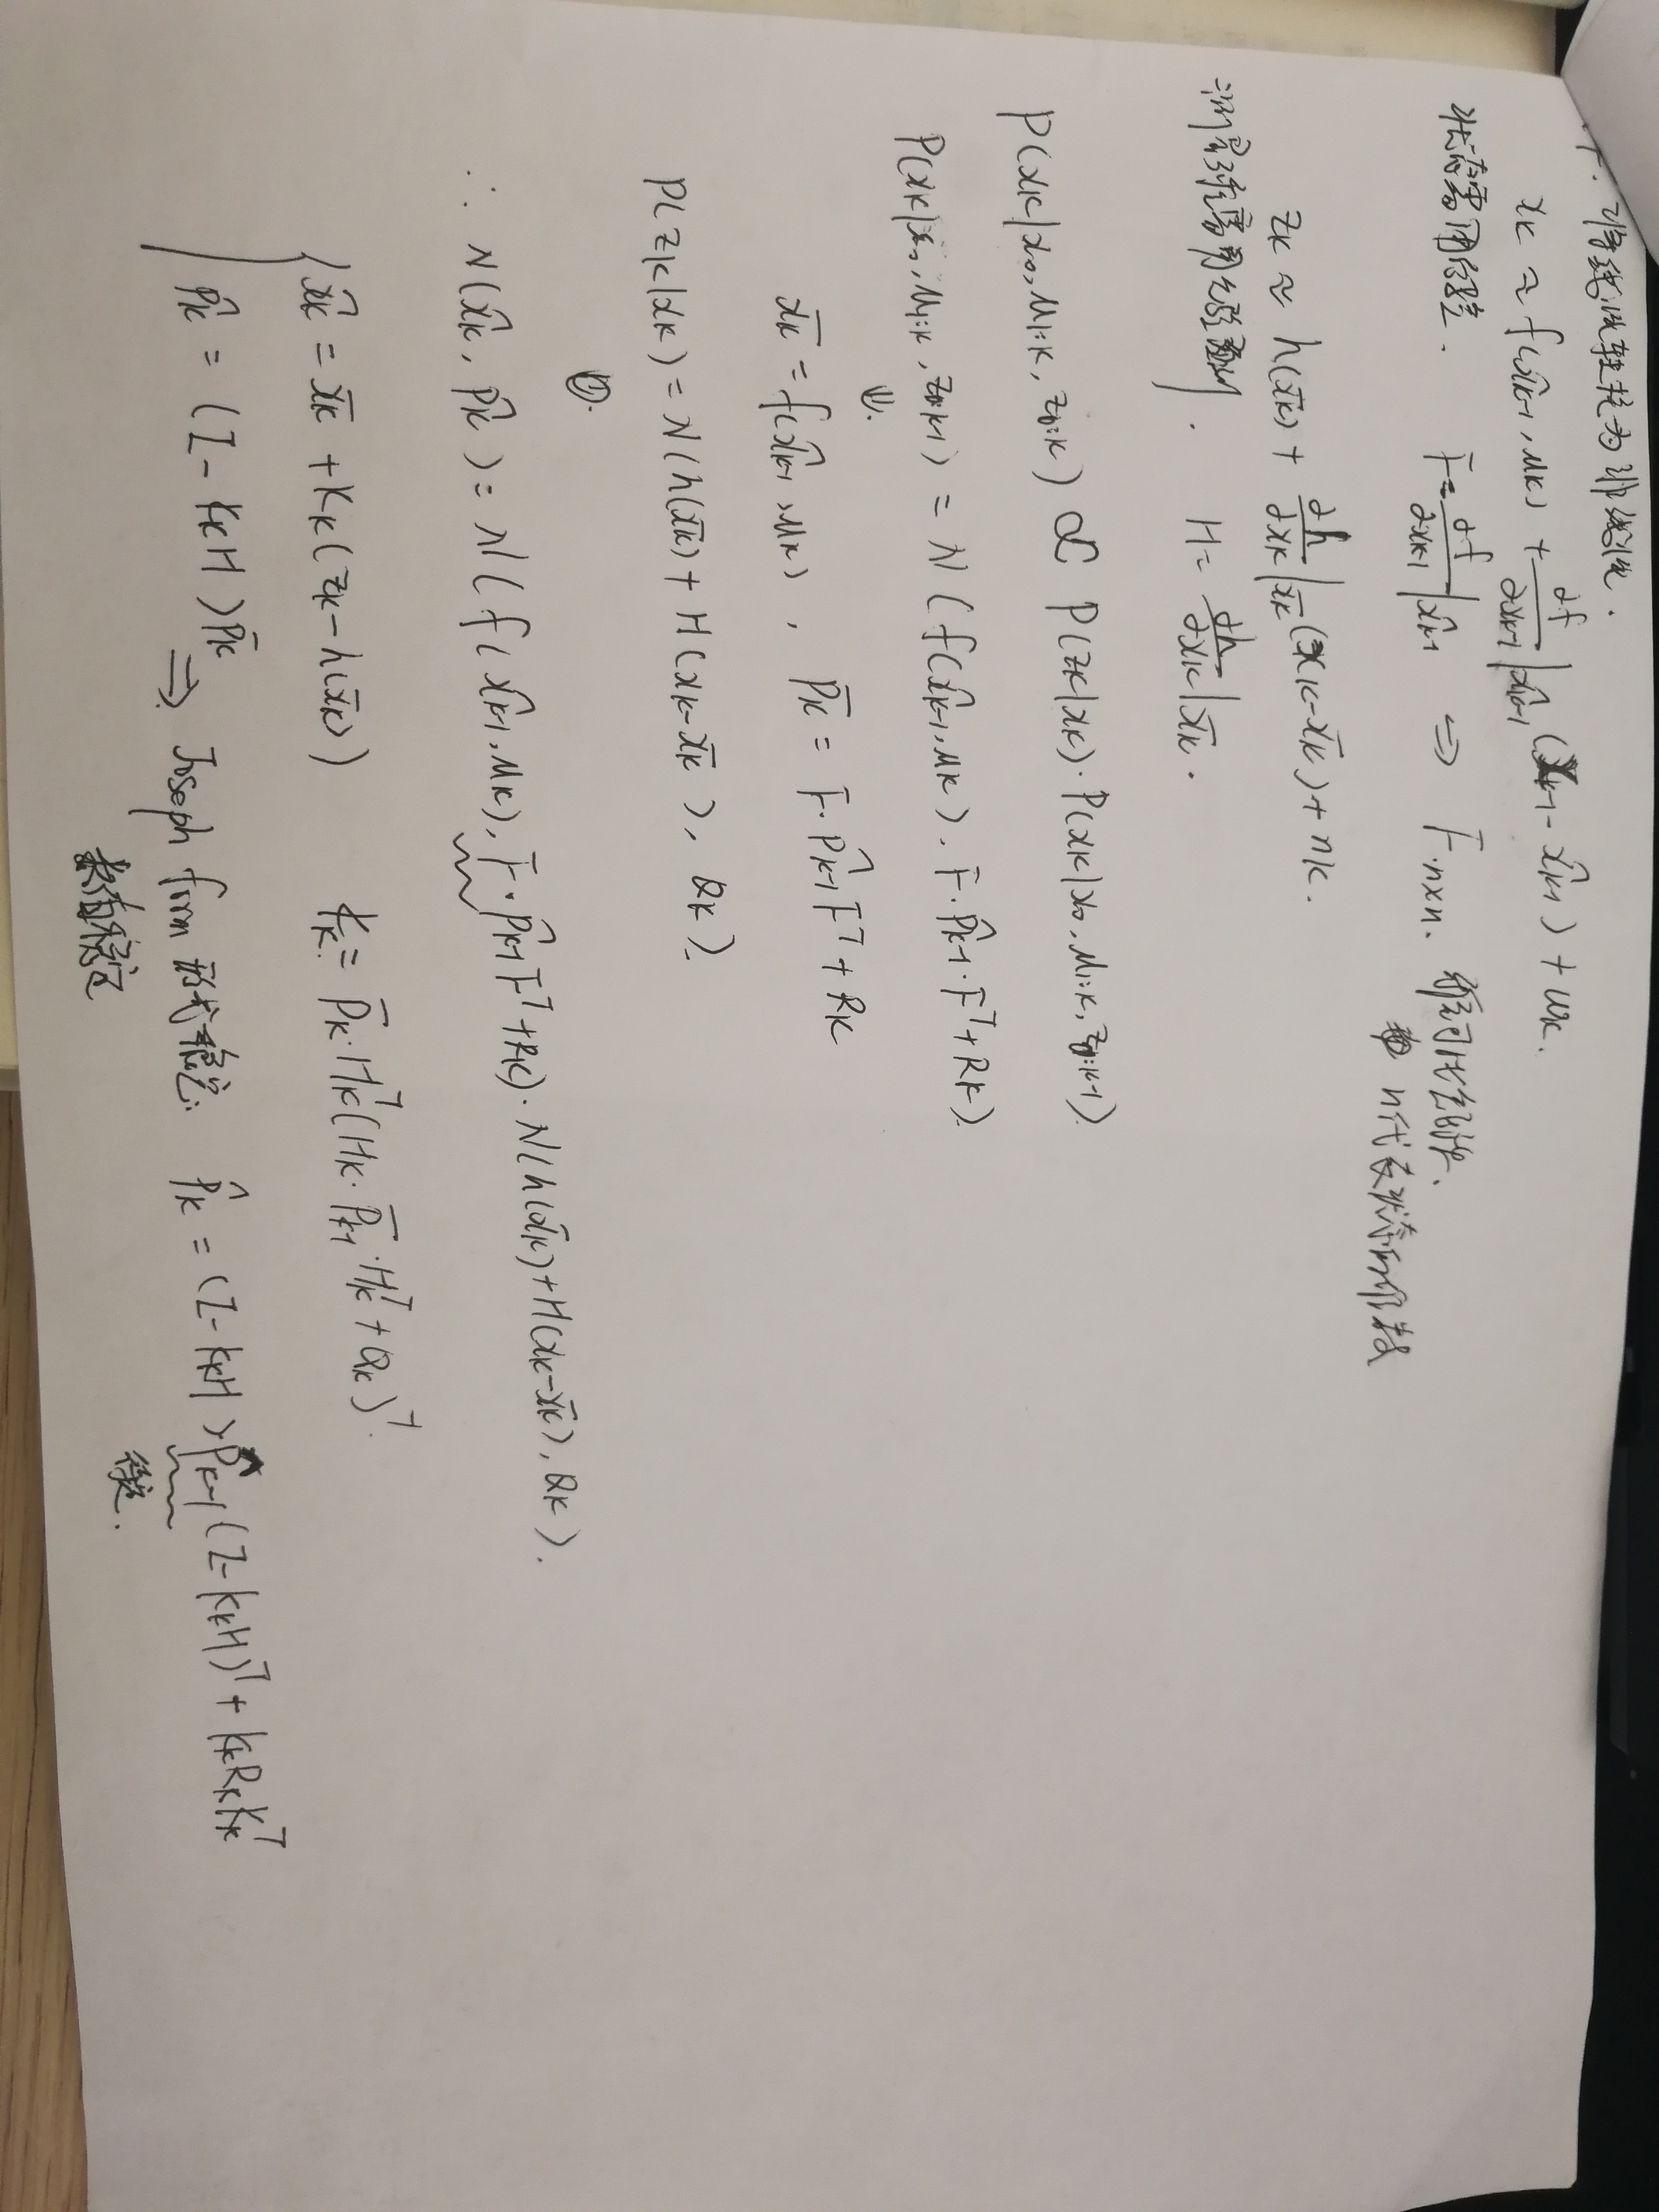 将线性转换为非线性.
xk ≈ f(x̂k-1, uk) + ∂f/∂xk-1 | x̂k-1 (xk-1 - x̂k-1) + wk.
状态雷可比 . F = ∂f/∂xk-1 | x̂k-1 ⇒ F. n×n. 雅可比
n代表状态的维数
zk ≈ h(x̄k) + ∂h/∂xk | x̄k (xk - x̄k) + nk.
测量雅 . H = ∂h/∂xk | x̄k .
P(xk|x0, u1:k, z0:k) ∝ P(zk|xk) · P(xk|x0, u1:k, z0:k-1).
P(xk|x0, u1:k, z0:k-1) = N(f(x̂k-1, uk). F·P̂k-1·F^T + Rk).
①.
x̄k = f(x̂k-1, uk) , P̄k = F·P̂k-1F^T + Rk
P(zk|xk) = N(h(x̄k) + H(xk - x̄k), Qk).
②.
∴ N(x̂k, P̂k) = N(f(x̂k-1, uk), F·P̂k-1F^T + Rk) · N(h(x̄k) + H(xk - x̄k), Qk).
x̂k = x̄k + Kk(zk - h(x̄k)) Kk = P̄k·Hk^T(Hk·P̄k-1·Hk^T + Qk)^-1.
P̂k = (I - KkH)P̄k
⇒ Joseph form 形式稳定: P̂k = (I - KkH)P̂k-1(I - KkH)^T + KkRkKk^T
数值稳定
待定.